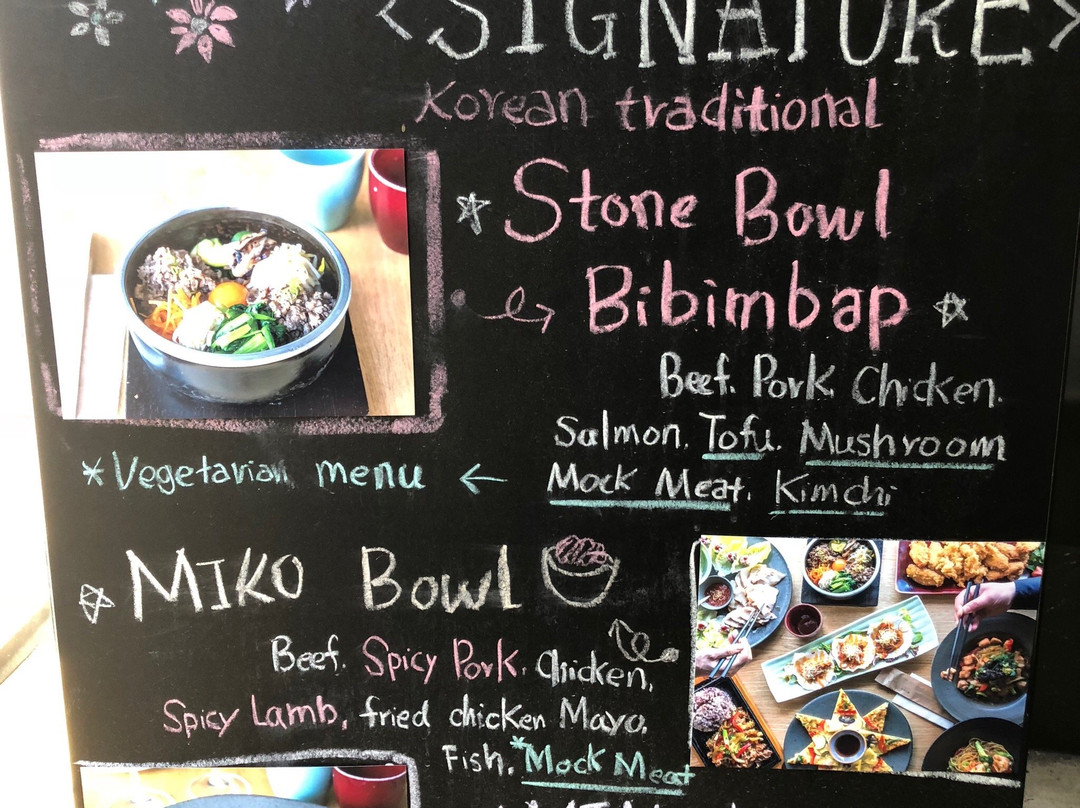 <SIGNATURE>
Korean traditional
Stone Bowl
Bibimbap
Beef. Pork. Chicken.
Salmon. Tofu. Mushroom
*Vegetarian menu ← Mock Meat. Kimchi
MIKO Bowl
Beef. Spicy Pork. Chicken.
Spicy Lamb, fried chicken Mayo,
Fish. *Mock Meat